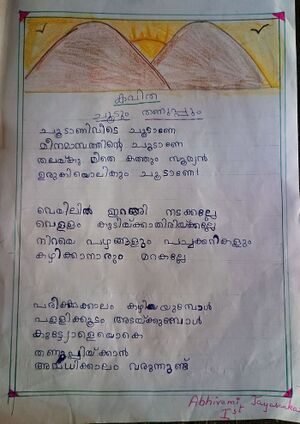 കവിത
ചൂടും തണുപ്പും
ചൂടാണിവിടെ ചൂടാണേ
മീനമാസത്തിന്റെ ചൂടാണേ
തലയ്ക്കു മീതെ കത്തും സൂര്യൻ
ഉരുകിയൊലികും ചൂടാണേ!
വെയിലിൽ ഇറങ്ങി നടക്കല്ലേ
വെള്ളം കുടിയ്ക്കാതിരിയ്ക്കല്ലേ
നിറയെ പഴങ്ങളും പച്ചക്കറികളും
കഴിക്കാനാരും മറകല്ലേ
പരീക്ഷക്കാലം കഴിയുമ്പോൾ
പള്ളിക്കൂടം അടയ്ക്കുമ്പോൾ
കൂട്ടരെയൊകെ
തണുപ്പിയ്ക്കാൻ
അവധിക്കാലം വരുന്നുണ്ട്
Abhirami
Ist